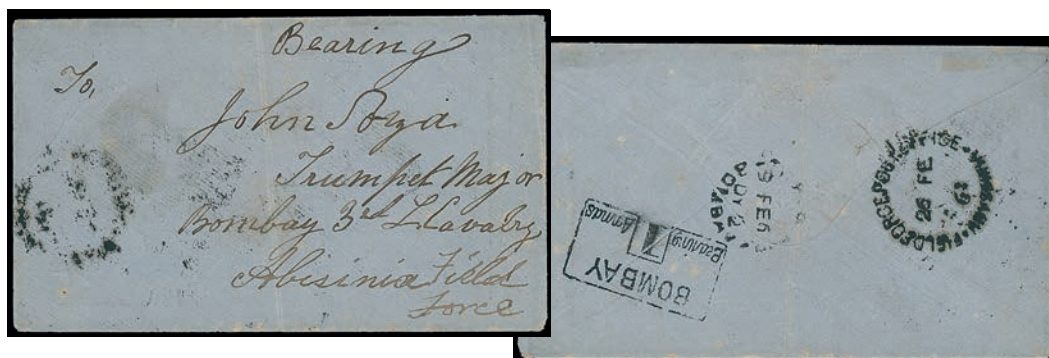 Bearing
To,
John
Trumpet Major
Bombay 3rd L Cavalry
Abisinia Field
Force
BOMBAY
Bearing 1 Annas
BOMBAY
FE 6
FIELD FORCE POST OFFICE
26 FE
68